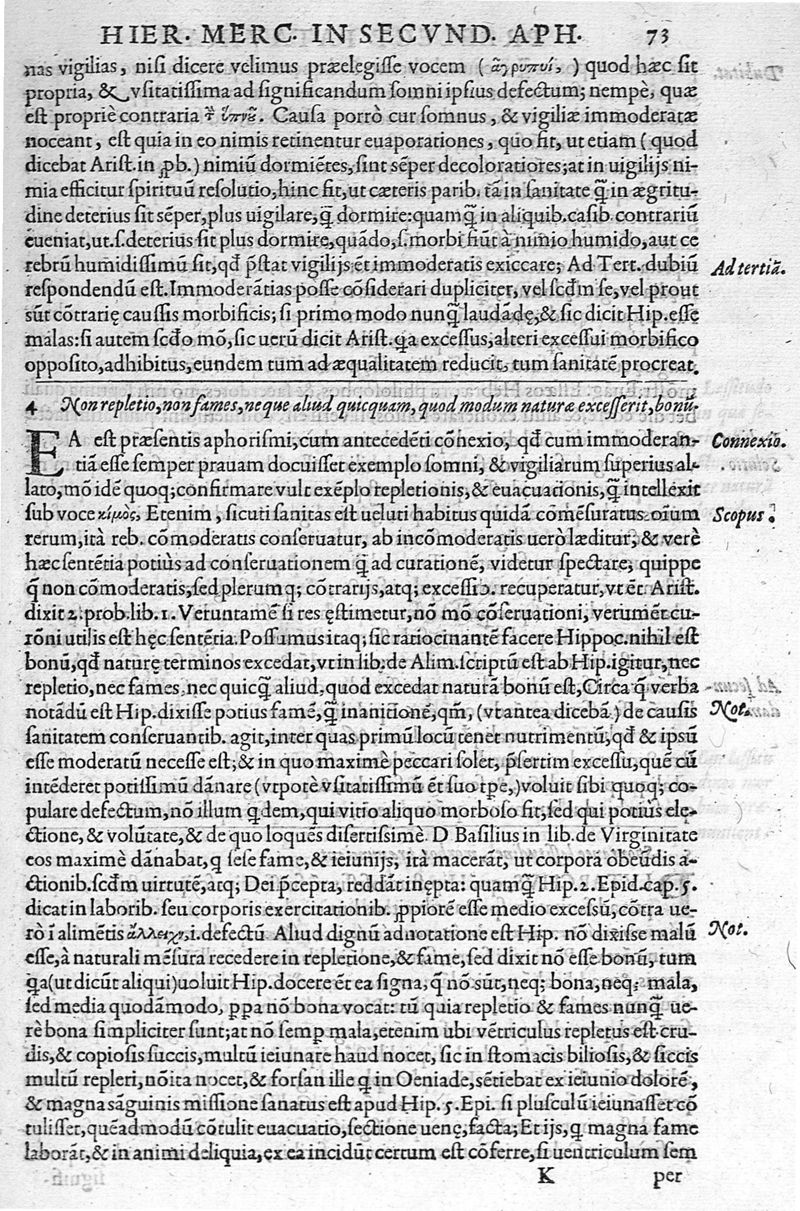 HIER. MERC. IN SECVND. APH. 73
nas vigilias, nisi dicere velimus præelegisse vocem ( ) quod hæc sit
propria, & vsitatissima ad significandum somni ipsius defectum; nempè, quæ
est propriè contraria Causa porrò cur somnus, & vigiliæ immoderatæ
noceant, est quia in eo nimis retinentur euaporationes, quo fit, ut etiam (quod
dicebat Arist. in ꝓb.) nimiũ dormiẽtes, sint sẽper decoloratiores; at in uigilijs ni-
mia efficitur spirituũ resolutio, hinc fit, ut cæteris parib. tã in sanitate q̃ in ægritu-
dine deterius sit sẽper, plus uigilare, q̃ dormire: quamq̃ in aliquib. casib. contrariũ
eueniat, ut .s. deterius sit plus dormire, quãdo, s. morbi fiũt à nimio humido, aut ce
rebrũ humidissimũ sit, qd̃ p̃stat vigilijs ẽt immoderatis exiccare; Ad Tert. dubiũ
Ad tertiã.
respondendũ est. Immoderãtias posse cõsiderari dupliciter, vel scd̃m se, vel prout
sũt cõtrarię caussis morbificis; si primo modo nunq̃ laudãdę, & sic dicit Hip. essę
malas: si autem scd̃o mõ, sic uerũ dicit Arist. q̃a excessus, alteri excessui morbifico
opposito, adhibitus, eundem tum ad æqualitatem reducit, tum sanitatẽ procreat.
4 Non repletio, non fames, neque aliud quicquam, quod modum naturæ excesserit, bonũ.
EA est præsentis aphorismi, cum antecedẽti cõnexio, qd̃ cum immoderan-
Connexio.
tiã esse semper prauam docuisset exemplo somni, & vigiliarum superius al-
lato, mõ idẽ quoq; confirmare vult exẽplo repletionis, & euacuationis, q̃ intellexit
sub voce κίμος, Etenim, sicuti sanitas est ueluti habitus quidã cõmẽsuratus oĩum
Scopus.
rerum, ità reb. cõmoderatis conseruatur, ab incõmoderatis uerò læditur, & verè
hæc sentẽtia potiùs ad conseruationem q̃ ad curationẽ, videtur spectare, quippe
q̃ non cõmoderatis, sed plerumq; cõtrarijs, atq; excessib. recuperatur, vt ẽt Arist.
dixit 2. prob. lib. 1. Veruntamẽ si res ęstimetur, nõ mõ cõseruationi, verumẽt cu-
rõni utilis est hęc sentẽtia. Possumus itaq; sic ratiocinantẽ facere Hippoc. nihil est
bonũ, qd̃ naturę terminos excedat, vt in lib. de Alim. scriptũ est ab Hip. igitur, nec
repletio, nec fames, nec quicq̃ aliud, quod excedat naturã bonũ est, Circa q̃ verba
notãdũ est Hip. dixisse potius famẽ, q̃ inanitionẽ, qm̃, (vt antea dicebã) de causis
Not.
sanitatem conseruantib. agit, inter quas primũ locũ tenet nutrimentũ, qd̃ & ipsũ
esse moderatũ necesse est; & in quo maximè peccari solet, p̃sertim excessu, quẽ cũ
intẽderet potissimũ dãnare (vtpotè vsitatissimũ ẽt suo tp̃e,) voluit sibi quoq; co-
pulare defectum, nõ illum q̃dem, qui vitio aliquo morboso fit, sed qui potius elę-
ctione, & volũtate, & de quo loquẽs disertissimè. D Basilius in lib. de Virginitate
eos maximè dãnabat, q sese fame, & ieiunijs, ità macerãt, ut corpora obeũdis a-
ctionib. scd̃m uirtutẽ, atq; Dei p̃cepta, reddãt inępta: quamq̃ Hip. 2. Epid. cap. 5.
dicat in laborib. seu corporis exercitationib. ꝓpiorẽ esse medio excessũ, cõtra ue-
rò ĩ alimẽtis i. defectũ Aliud dignũ adnotatione est Hip. nõ dixisse malũ
Not.
esse, à naturali mẽsura recedere in repletione, & fame, sed dixit nõ esse bonũ, tum
q̃a (ut dicũt aliqui) uoluit Hip. docere ẽt ea signa, q̃ nõ sũt, neq; bona, neq; mala,
sed media quodãmodo, ꝓpa nõ bona vocat: tũ quia repletio & fames nunq̃ ue-
rè bona simpliciter sunt; at nõ semp mala, etenim ubi vẽtriculus repletus est cru-
dis, & copiosis succis, multũ ieiunare haud nocet, sic in stomacis biliosis, & siccis
multũ repleri, nõ ita nocet, & forsan ille q̃ in Oeniade, sẽtiebat ex ieiunio dolorẽ,
& magna sãguinis missione sanatus est apud Hip. 5. Epi. si plusculũ ieiunasset cõ
tulisset, quẽadmodũ cõtulit euacuatio, sectione uenę, facta; Et ijs, q̃ magna fame
laborãt, & in animi deliquia, ex ea incidũt certum est cõferre, si uentriculum sem
K per